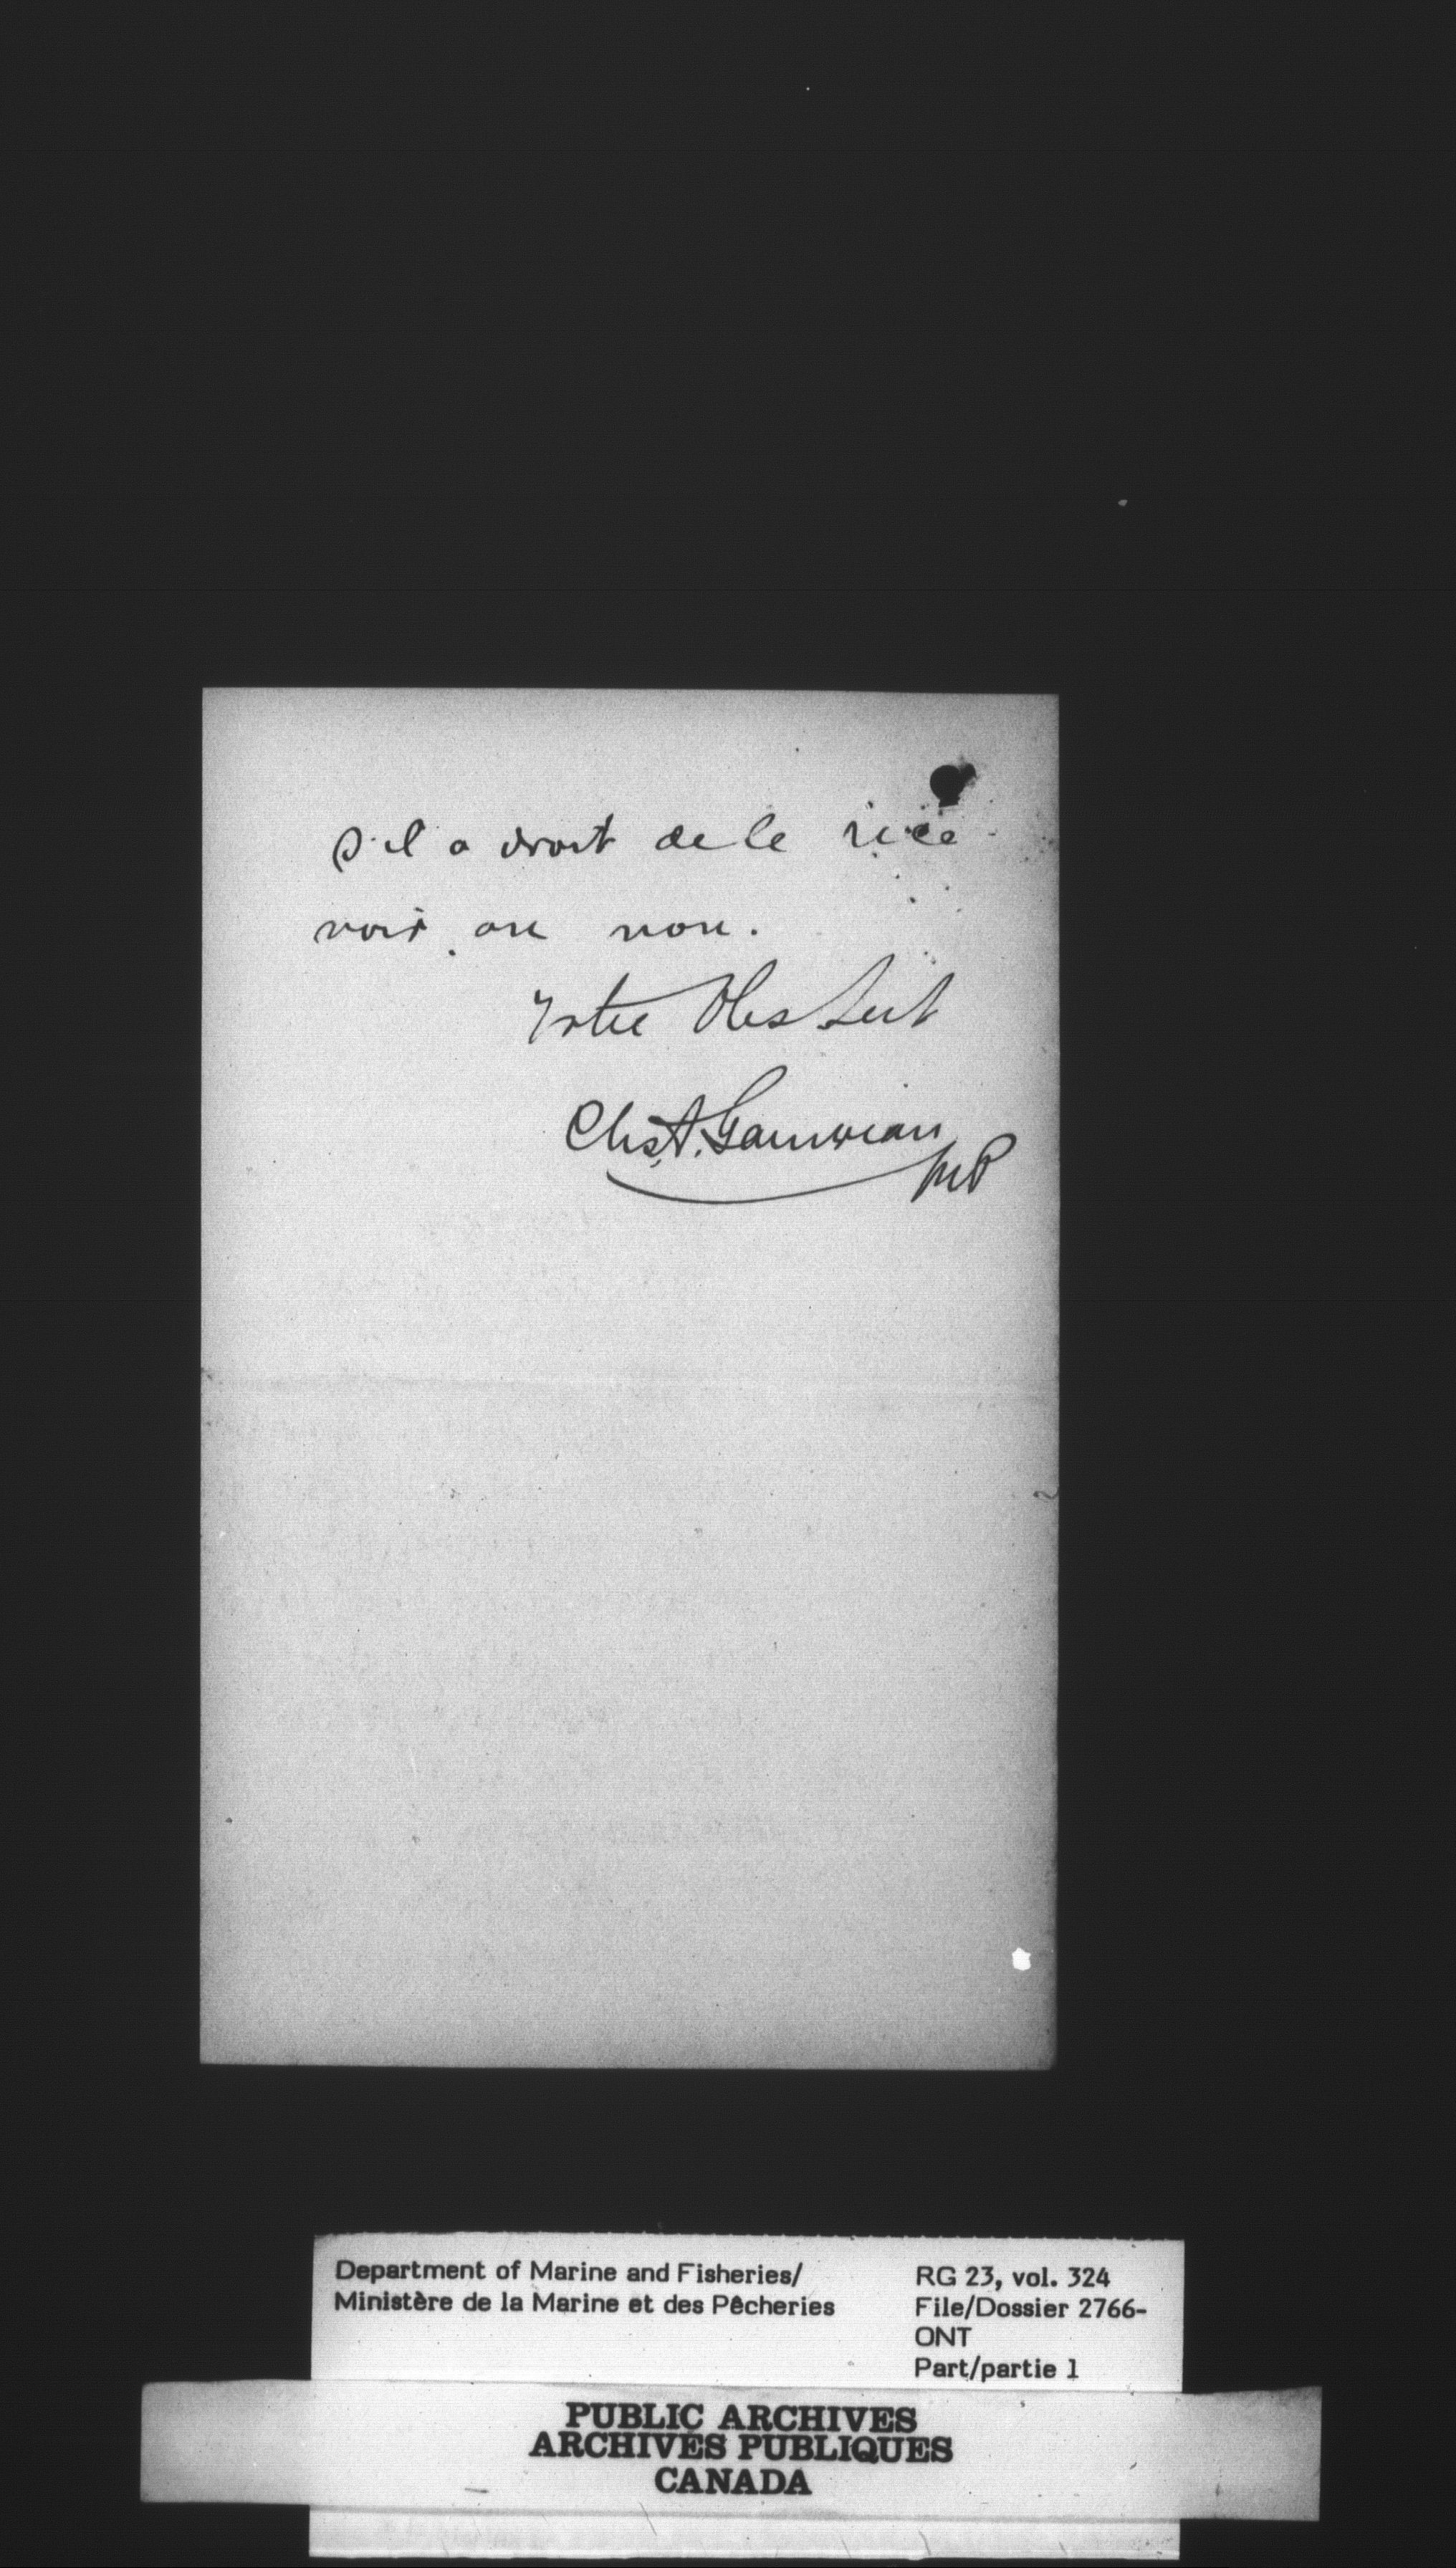 s'il a droit de le rece
voir ou non.
Votre Obs Sert
Chs. A. Gauvreau
MP
Department of Marine and Fisheries/
Ministère de la Marine et des Pêcheries
RG 23, vol. 324
File/Dossier 2766-
ONT
Part/partie 1
PUBLIC ARCHIVES
ARCHIVES PUBLIQUES
CANADA